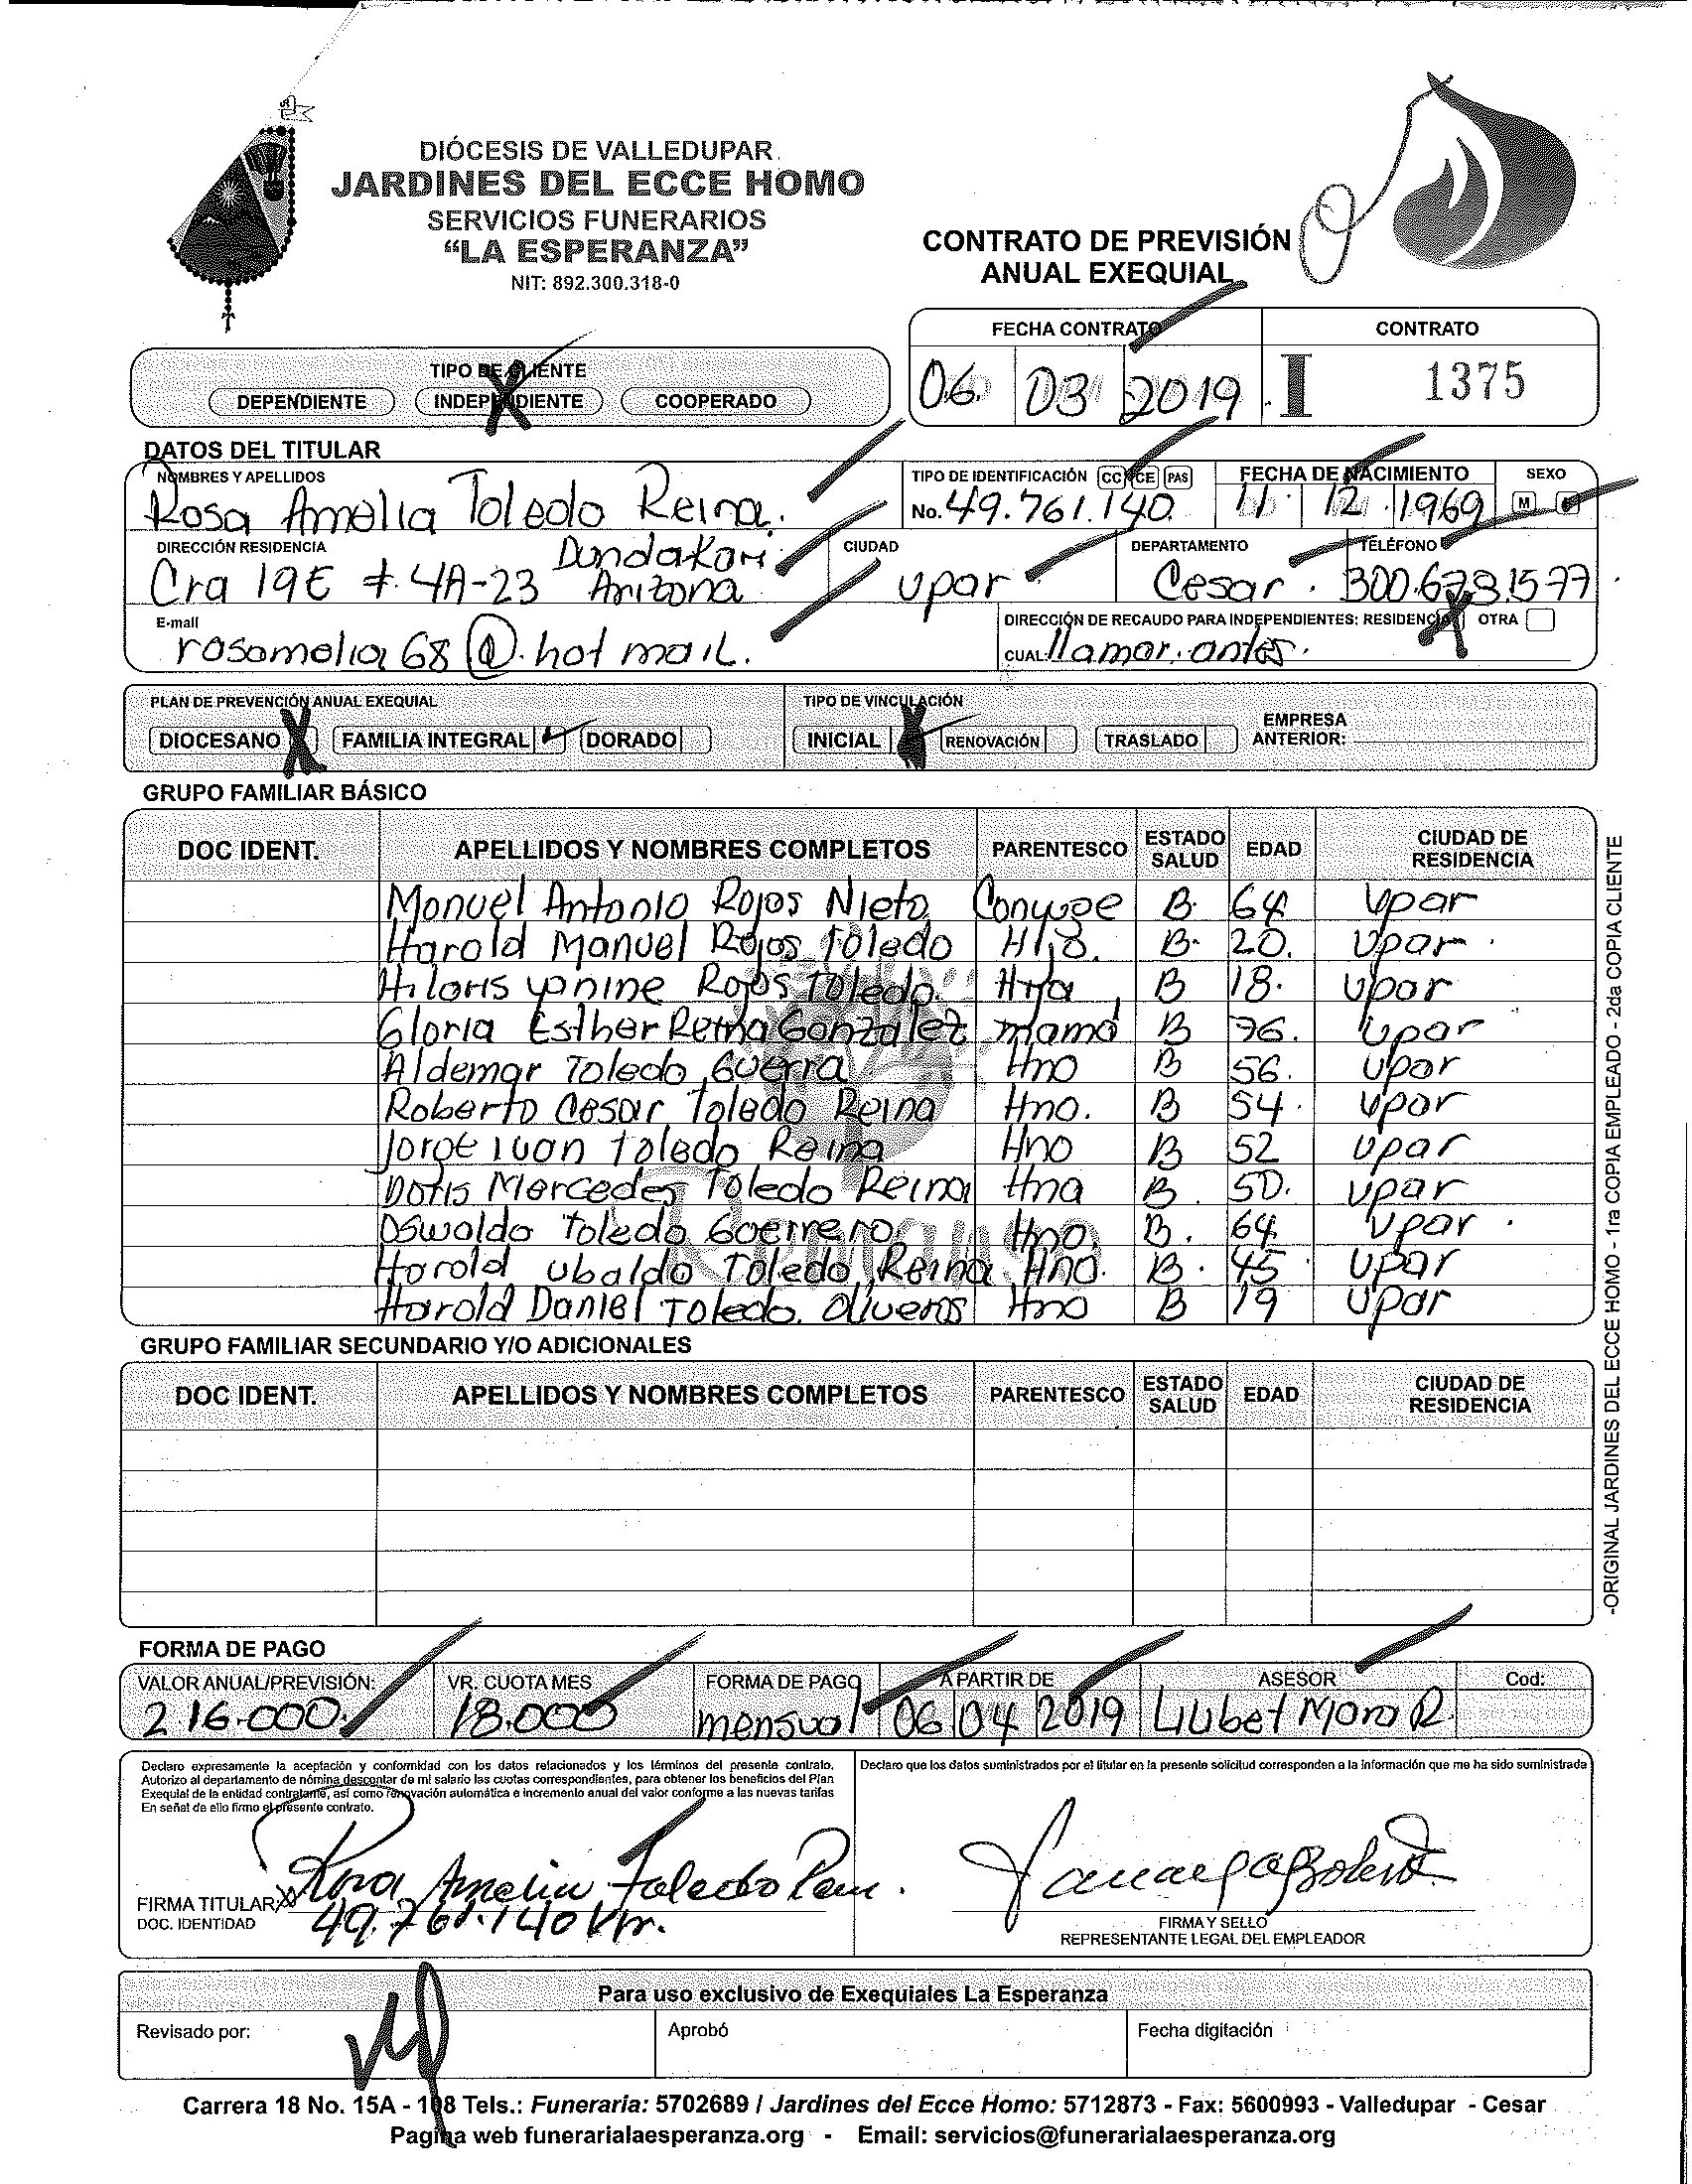 DIÓCESIS DE VALLEDUPAR
JARDINES DEL ECCE HOMO
SERVICIOS FUNERARIOS
"LA ESPERANZA"
NIT: 892.300.318-0
CONTRATO DE PREVISIÓN
ANUAL EXEQUIAL
FECHA CONTRATO CONTRATO
06 03 2019 I 1375
TIPO DE CLIENTE
DEPENDIENTE INDEPENDIENTE COOPERADO
DATOS DEL TITULAR
NOMBRES Y APELLIDOS TIPO DE IDENTIFICACIÓN CC CE PAS FECHA DE NACIMIENTO SEXO
Rosa Amelia Toledo Reina. No. 49.761.140 11 12 1969 M
DIRECCIÓN RESIDENCIA CIUDAD DEPARTAMENTO TELÉFONO
Cra 19E #. 4A-23 Arizona upar Cesar. 300.6
E-mail DIRECCIÓN DE RECAUDO PARA INDEPENDIENTES: RESIDENCIA OTRA
rosamelia68@.hotmail. CUAL: llamar. antes.
PLAN DE PREVENCIÓN ANUAL EXEQUIAL TIPO DE VINCULACIÓN
DIOCESANO FAMILIA INTEGRAL DORADO INICIAL RENOVACIÓN TRASLADO EMPRESA ANTERIOR:
GRUPO FAMILIAR BÁSICO
DOC IDENT. APELLIDOS Y NOMBRES COMPLETOS PARENTESCO ESTADO SALUD EDAD CIUDAD DE RESIDENCIA
Manuel Antonio Rojas Nieto Conyuge B. 64 Upar
Harold Manuel Rojas Toledo Hijo. B. 20. Upar.
Hiloris yanine Rojas Toledo. Hija B 18. Upar
Gloria Esther Reina Gonzalez mamá B 76. Upar
Aldemar Toledo Guerra Hno B 56. Upar
Roberto Cesar Toledo Reina Hno. B 54. Upar
Jorge Ivan Toledo Reina Hno B 52 Upar
Doris Mercedes Toledo Reina Hna B. 50. Upar
Oswaldo Toledo Guerrero Hno. B. 64 Upar.
Harold Ubaldo Toledo Reina Hno. B. 45 Upar
Harold Daniel Toledo. Oliveros Hno B 19 Upar
GRUPO FAMILIAR SECUNDARIO Y/O ADICIONALES
DOC IDENT. APELLIDOS Y NOMBRES COMPLETOS PARENTESCO ESTADO SALUD EDAD CIUDAD DE RESIDENCIA
FORMA DE PAGO
VALOR ANUAL/PREVISIÓN: VR. CUOTA MES FORMA DE PAGO A PARTIR DE ASESOR Cod:
216.000. 18.000 mensual 06 04 2019 Liubet Mora R.
Declaro expresamente la aceptación y conformidad con los datos relacionados y los términos del presente contrato.
Autorizo al departamento de nómina descontar de mi salario las cuotas correspondientes, para obtener los beneficios del Plan
Exequial de la entidad contratante, así como renovación automática e incremento anual del valor conforme a las nuevas tarifas
En señal de ello firmo el presente contrato.
Declaro que los datos suministrados por el titular en la presente solicitud corresponden a la información que me ha sido suministrada
Rosa Amelia Toledo
FIRMA TITULAR:
DOC. IDENTIDAD 49.761.140
FIRMA Y SELLO
REPRESENTANTE LEGAL DEL EMPLEADOR
Para uso exclusivo de Exequiales La Esperanza
Revisado por: Aprobó Fecha digitación
Carrera 18 No. 15A - 108 Tels.: Funeraria: 5702689 / Jardines del Ecce Homo: 5712873 - Fax: 5600993 - Valledupar - Cesar
Pagina web funerarialaesperanza.org - Email: servicios@funerarialaesperanza.org
-ORIGINAL JARDINES DEL ECCE HOMO - 1ra COPIA EMPLEADO - 2da COPIA CLIENTE